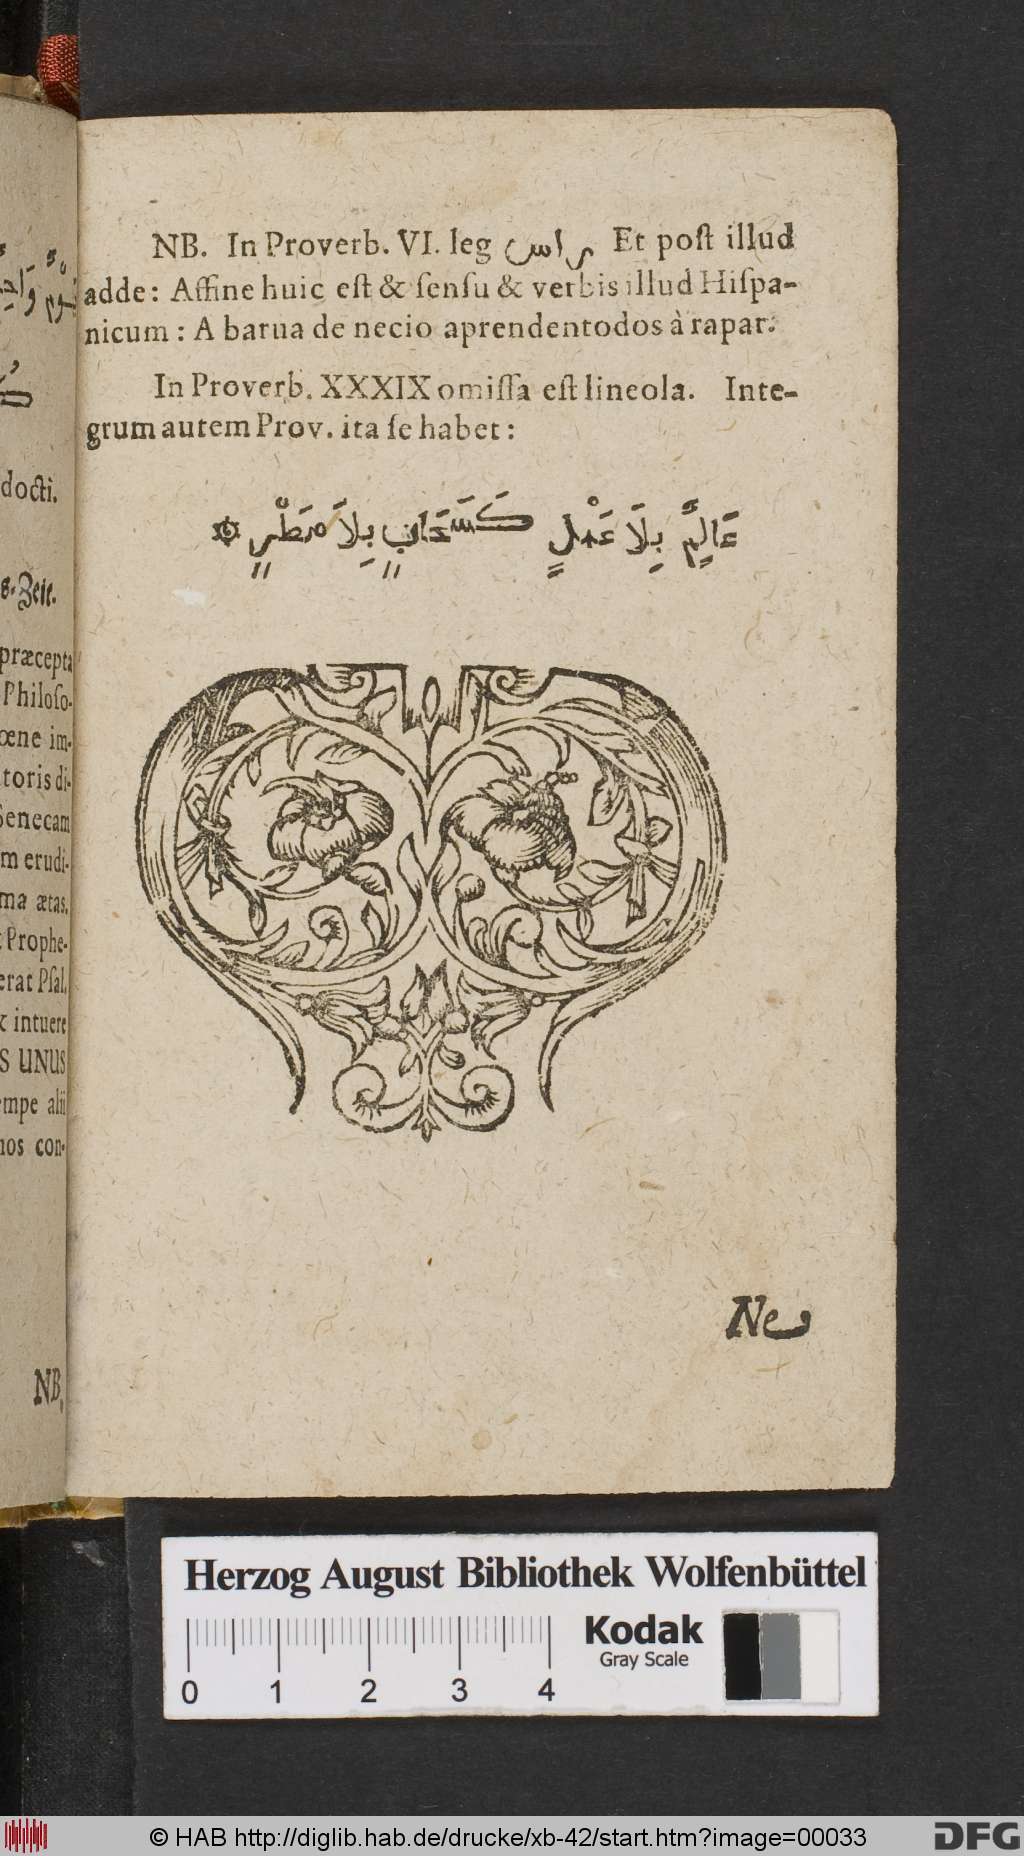 NB. In Proverb. VI. leg راس Et poſt illud
adde: Affine huic eſt & ſenſu & verbis illud Hiſpa-
nicum : A barua de necio aprendentodos à rapar.
In Proverb. XXXIX omiſſa eſt lineola. Inte-
grum autem Prov. ita ſe habet :
عَالِمٌ بِلَا عَمْلٍ كَسَحَابٍ بِلَا مَطْرٍ
Ne
docti.
s-Zeit.
præcepta
Philoſo-
œne im-
toris di-
Senecam
m erudi-
ma ætas.
t Prophe-
erat Pſal.
& intuere
S UNUS
empe alii
nos con-
NB.
Herzog August Bibliothek Wolfenbüttel
Kodak
Gray Scale
0 1 2 3 4
© HAB http://diglib.hab.de/drucke/xb-42/start.htm?image=00033
DFG